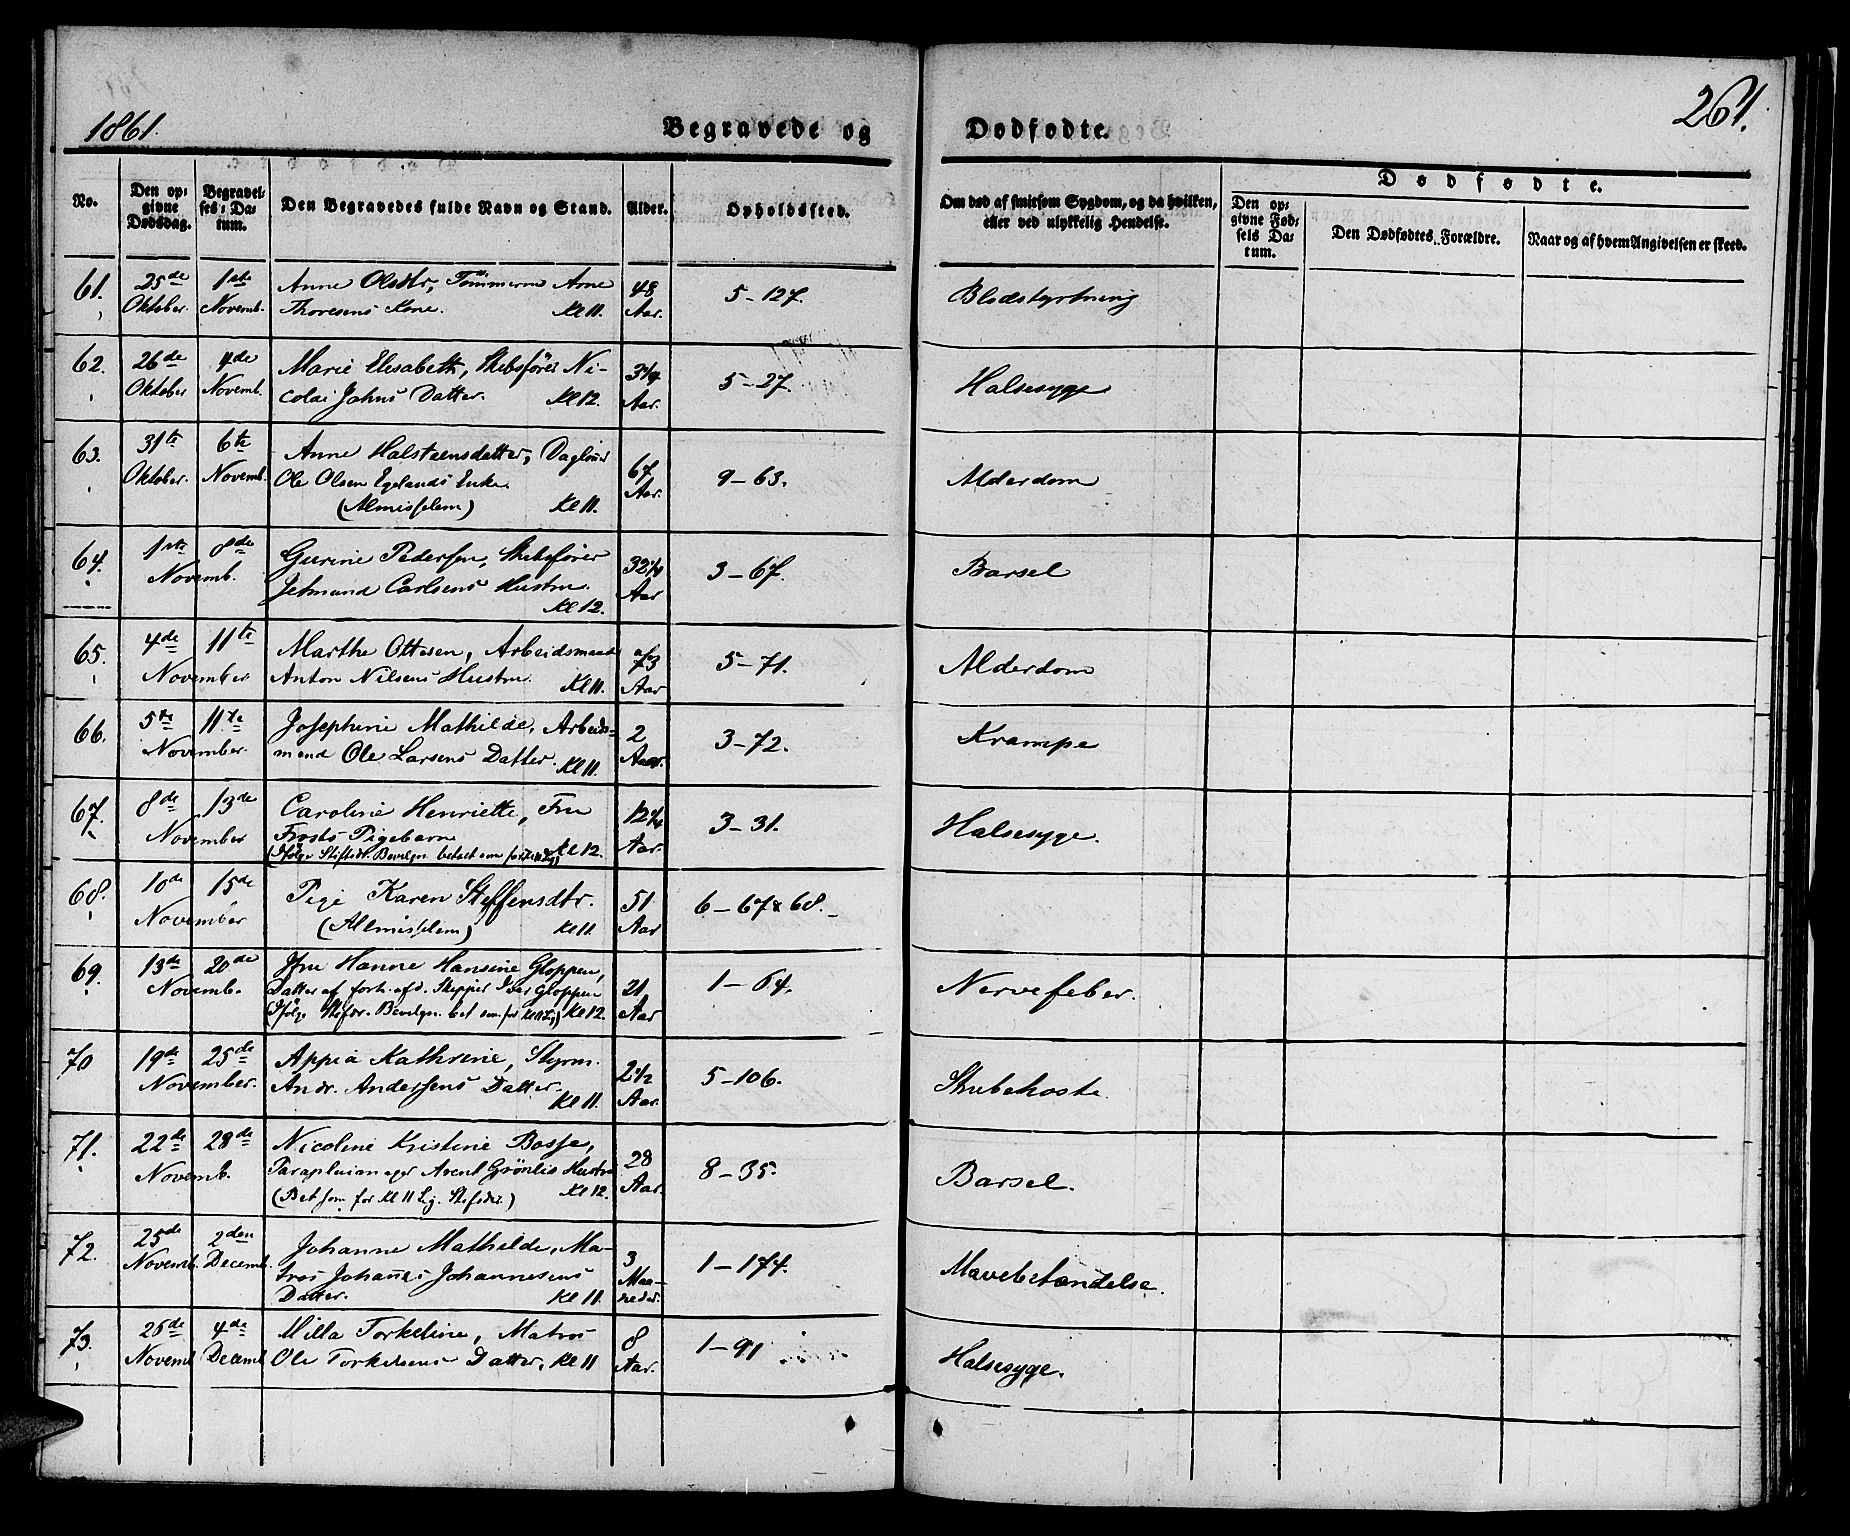 1861.
Begravede og Dødfødte.
261.
No.
Den opgivne Dødsdag.
Begravelses-Datum.
Den Begravedes fulde Navn og Stand.
Alder.
Opholdssted.
Om død af smitsom Sygdom, og da hvilken, eller ved ulykkelig Hendelse.
Dødfødte.
Den opgivne Fødsels Datum.
Den Dødfødtes Forældre.
Naar og af hvem Angivelsen er skeed.
61. 25de 1ste Anne Olsdtr, Tømmerm Arne 48 5-127. Blodstyrtning
Oktober. Novemb. Thoresens Kone. Kl 11. Aar.
62. 26de 4de Marie Elisabeth, Skibsfører Ni- 3 5-27. Halsesyge
Oktober Novemb. colai Jahns Datter. Kl 12. Aar.
63. 31te 6te Anne Halsteensdatter, Dagløner 67 9-63. Alderdom
Oktober. Novemb. Ole Olsen Egelands Enke. Aar.
(Almisselem) Kl 11.
64. 1ste 8de Gurine Pedersen, Skibsfører 32 3-67. Barsel
Novemb. Jetmund Carlsens Hustru. Aar
Kl 12.
65. 4de 11te Marthe Ottesen, Arbeidsmand 73 5-71. Alderdom
November Anton Nilsens Hustru. Kl 11. Aar
66. 5te 11te Josephine Mathilde, Arbeids- 2 3-72. Krampe
November. mand Ole Larsens Datter. Kl 11. Aar.
67. 8de 13de Caroline Henriette, Fru 12 3-31. Halsesyge.
November Frosts Pigebarn Aar.
(Ifølge Stiftsdr. Bevilgn. betalt som for Kl 11 Lig) Kl 12.
68. 10de 15de Pige Karen Steffensdtr. 51 6-67 & 68.
November (Almisselem) Kl 11. Aar
69. 13de 20de Jfru Hanne Hansine Gloppen, 21 1-64. Nervefeber.
Novemb. Datter af forh. afd. Skipper Iver Gloppen
(Ifølge Stifsdr. Bevilgn. bet som for Kl 11 Lig) Kl 12. Aar
70 19de 25de Appia Kathrine, Styrm. 2 1/2 5-106. Skubehoste
November. Andr. Andersens Datter. Kl 11. Aar.
71. 22de 28de Nicoline Kristine Bosse, 28 8-35. Barsel.
Novemb. Parapluimager Avent Grönlis Hustru Aar.
(Bet som for Kl 11 Lig. Stifsdr.) Kl 12.
72. 25de 2den Johanne Mathilde, Ma- 3 1-174. Mavebetændelse.
Novemb. Decemb. tros Johanes Johannesens Maa-
Datter. Kl 11. neder.
73. 26de 4de Milla Torkeline, Matros 8 1-91 Halsesyge.
Novemb Decemb Ole Torkelsens Datter, Kl 11 Aar.